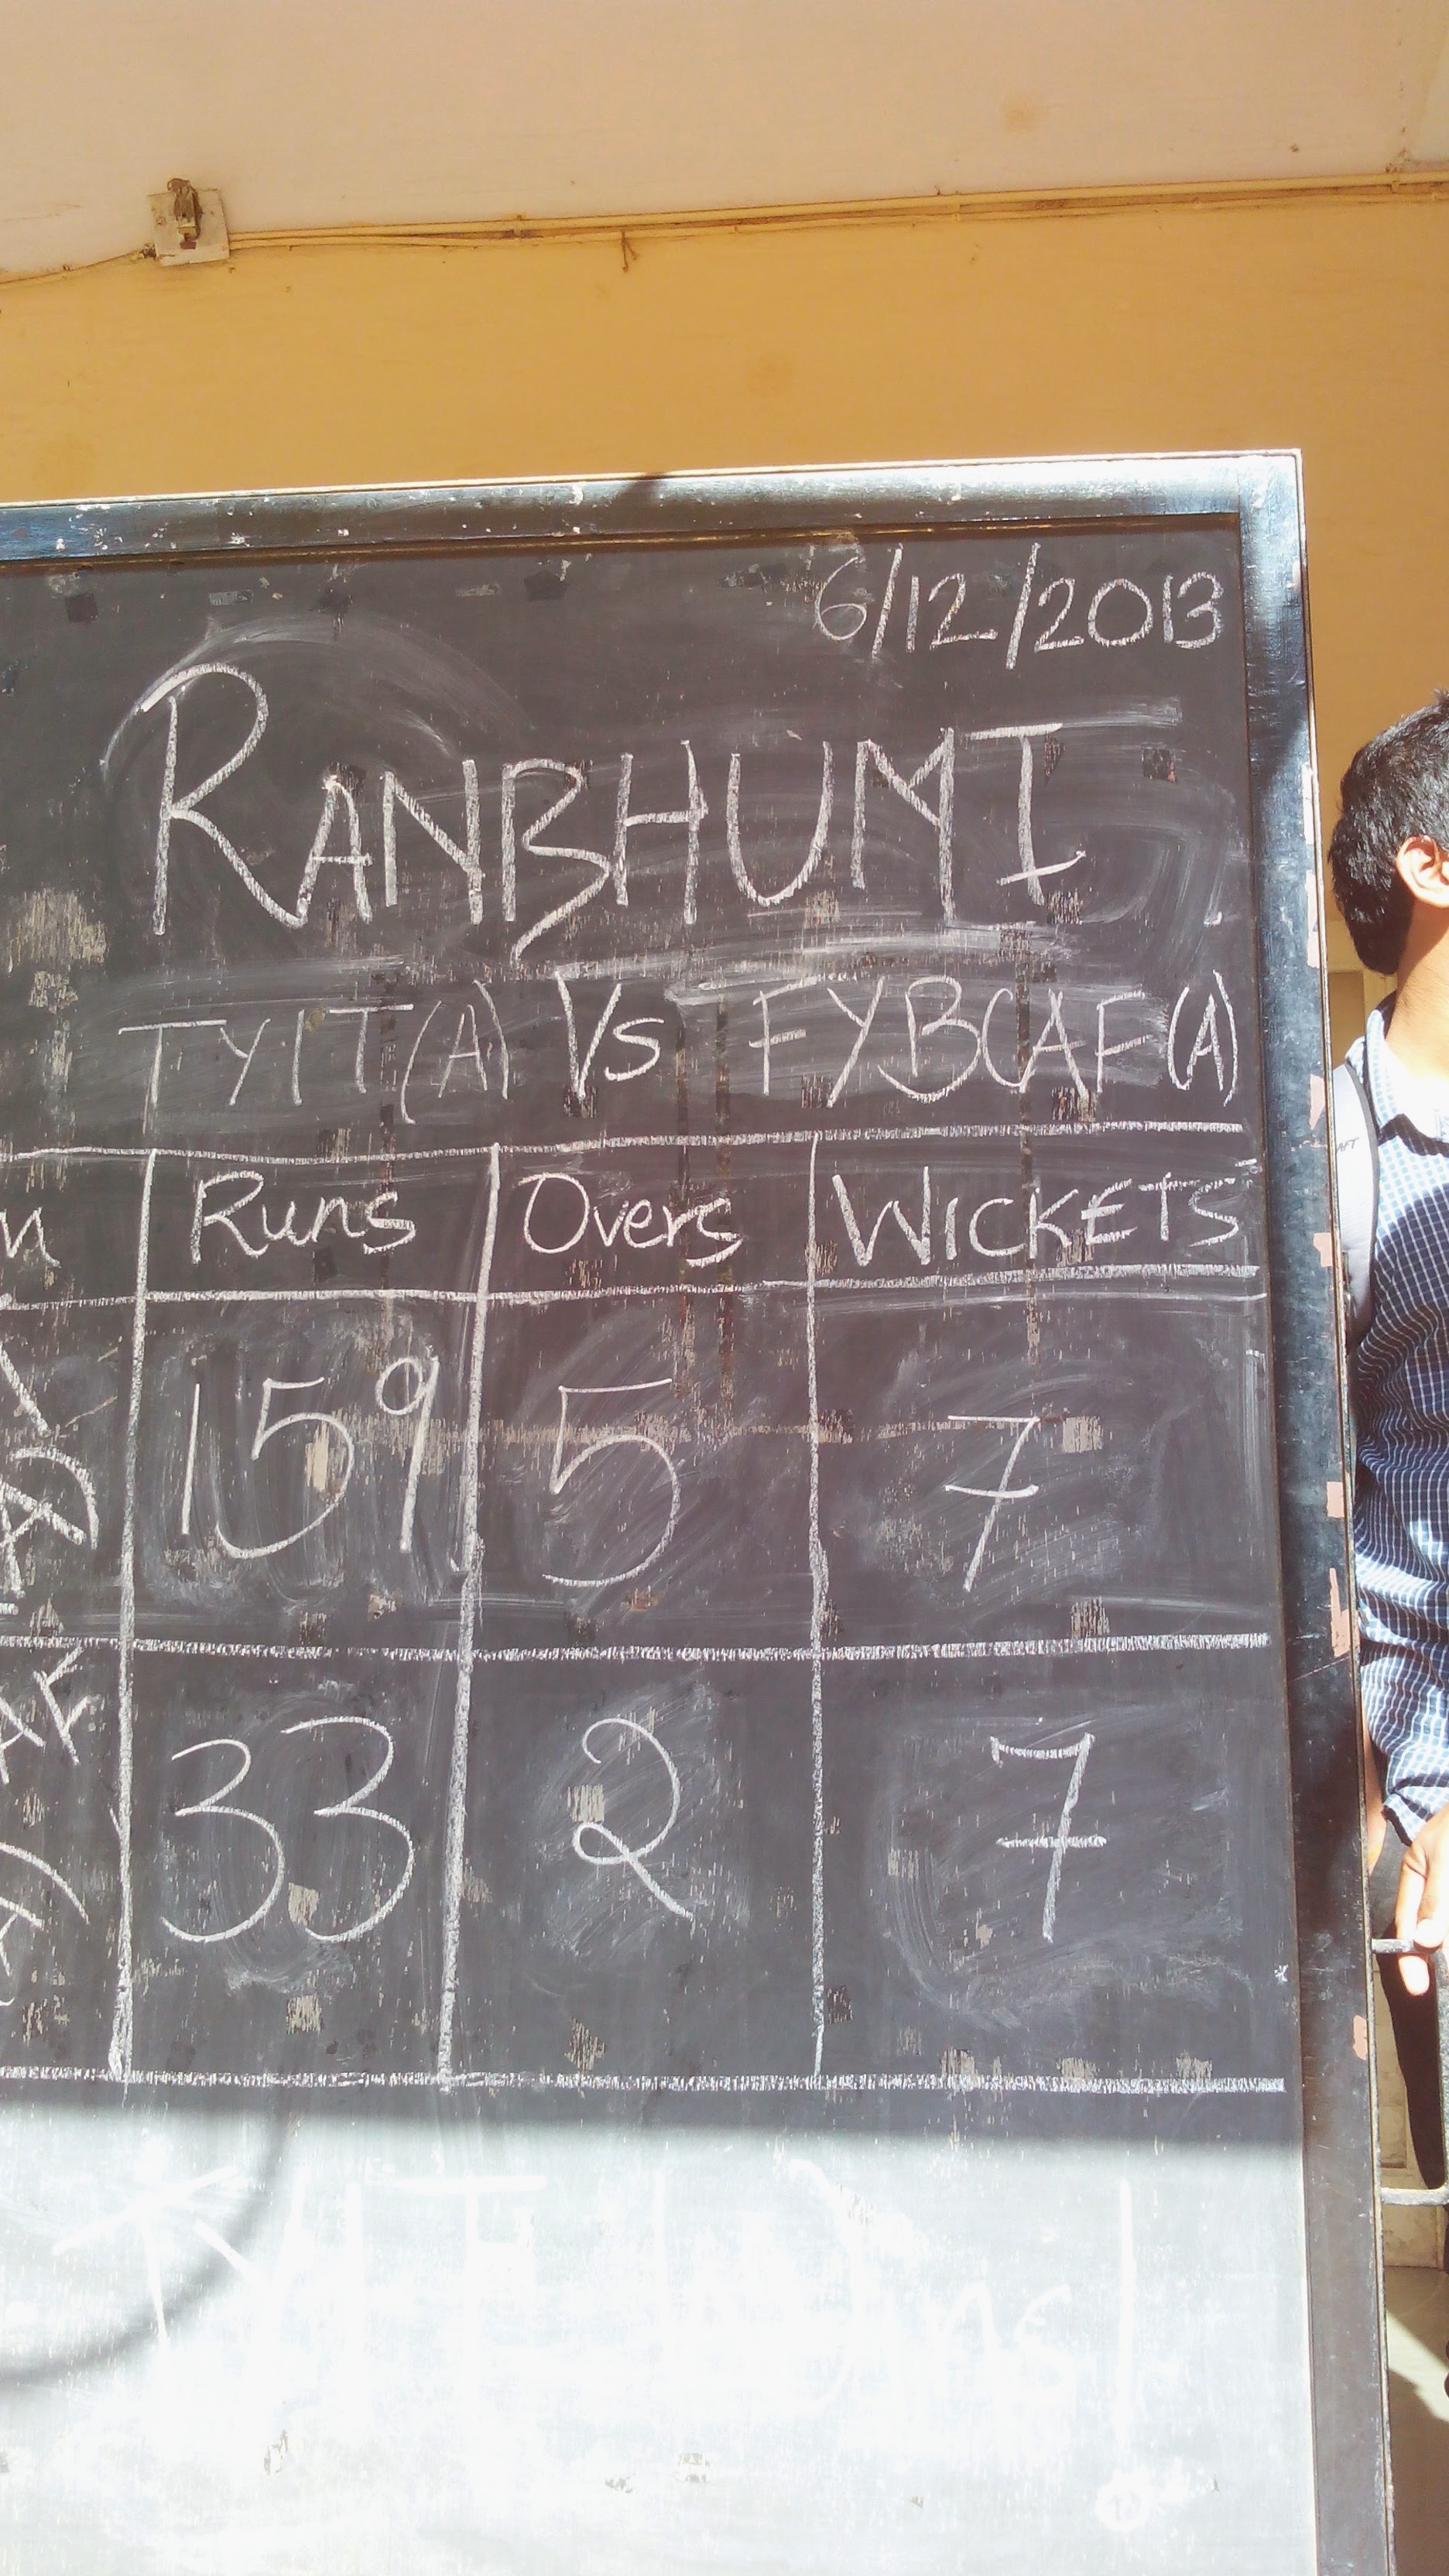 6/12/2013
RANBHUMI
TYIT(A) Vs FYBCAF(A)
Runs Overs WICKETS
159 5 7
33 2 7